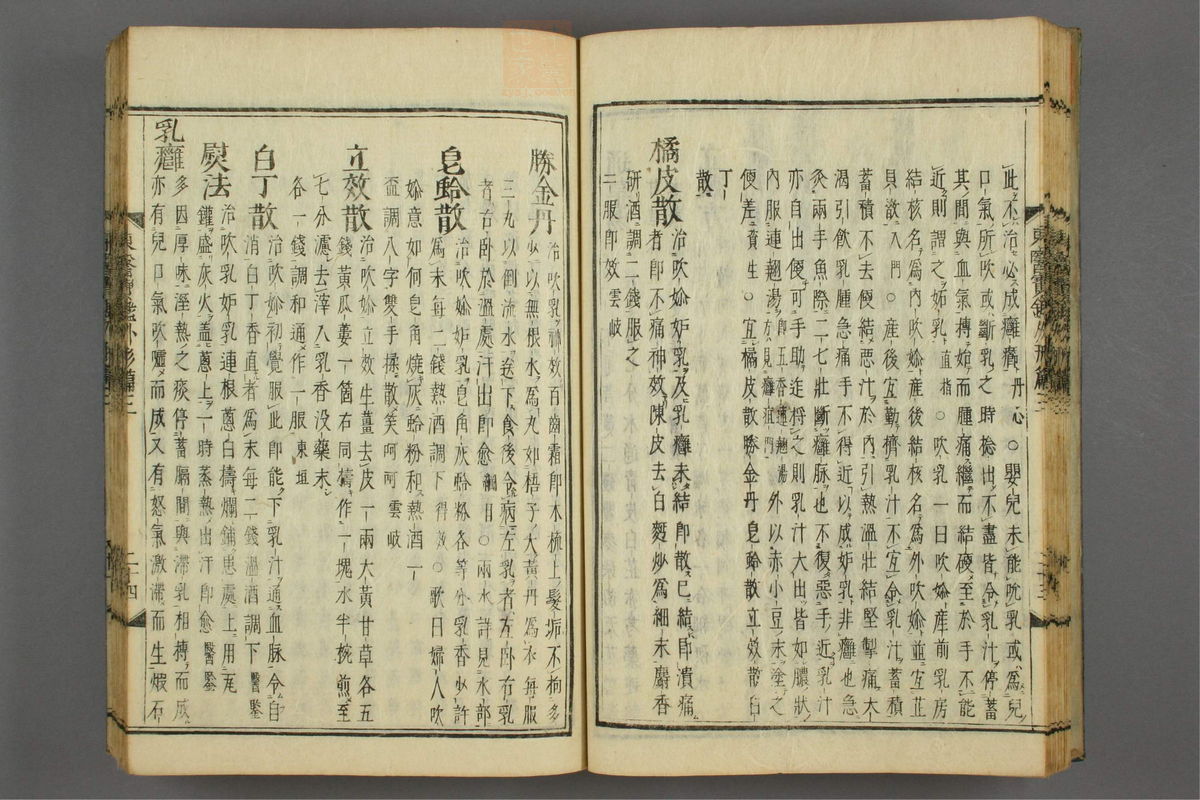 此不治必成癰癤丹心○嬰兒未能吮乳或爲兒
口氣所吹或斷乳之時捻出不盡皆令乳汁停蓄
其間與血氣搏始而腫痛繼而結硬至於手不能
近則謂之妬乳直指○吹乳一日吹嬭産前乳房
結核名爲內吹嬭産後結核名爲外吹嬭並宜芷
貝散入門○産後宜勤擠乳汁不宜令乳汁蓄積
蓄積不去便結惡汁於內引熱溫壯結堅掣痛大
渴引飮乳腫急痛手不得近以成妬乳非癰也急
灸兩手魚際二七壯斷癰脉也不復惡手近乳汁
亦自出便可手助迮捋之則乳汁大出皆如膿狀
內服連翹湯卽五香連翹湯方見癰疽門外以赤小豆末塗之
便差資生○宜橘皮散勝金丹皂蛤散立效散白
丁散
橘皮散治吹嬭妬乳及乳癰未結卽散已結卽潰痛
者卽不痛神效陳皮去白麪炒爲細末麝香
研酒調二錢服之
一服卽效
東醫寶鑑外形篇三
二十三
勝金丹治吹乳神效百齒霜卽木梳上髮垢不拘多
少以無根水爲丸如梧子大黃丹爲衣每服
三丸以倒流水卷下食後令病左乳者左卧右乳
者右卧於溫處汗出卽愈綱目○兩水詳見水部
皂蛤散治吹嬭妬乳皂角灰蛤粉各等分乳香少許
爲末每二錢熱酒調下得效○歌曰婦人吹
嬭意如何皂角燒灰蛤粉和熱酒一
盃調八字雙手揉散笑呵呵雲岐
立效散治吹嬭立效生薑去皮一兩大黃甘草各五
錢黃瓜蔞一箇右同擣作一塊水半椀煎至
七分濾去滓入乳香沒藥末
各一錢調和通作一服東垣
白丁散治吹嬭初覺服此卽能下乳汁通血脉令自
消白丁香直者爲末每二錢溫酒調下醫鑑
熨法治吹乳妬乳連根蔥白擣爛鋪患處上用瓦
鑵盛灰火盖蔥上一時蒸熱出汗卽愈醫鑑
乳癰多因厚味溼熱之痰停蓄膈間與滯乳相搏而成
亦有兒口氣吹噓而成又有怒氣激滯而生煆石
東醫寶鑑外形篇三
二十四